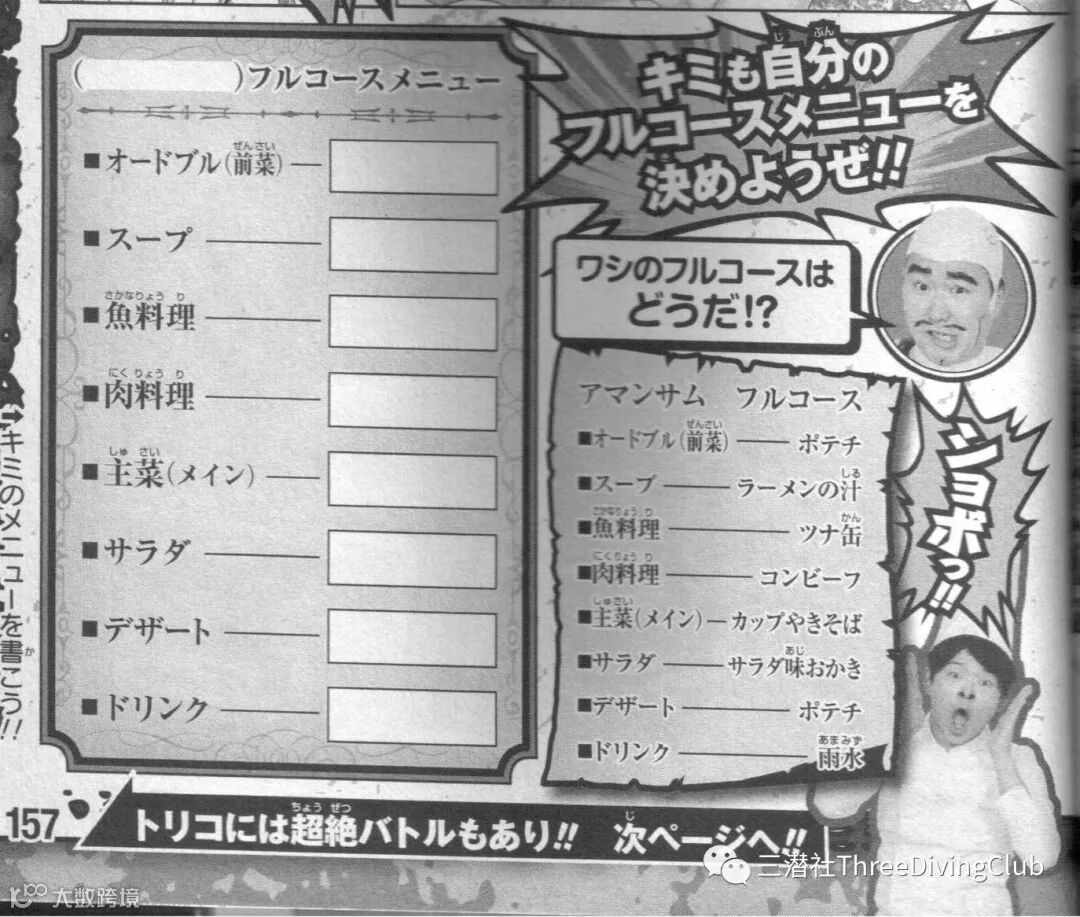 (　　　)フルコースメニュー
■オードブル(前菜)
■スープ
■魚料理
■肉料理
■主菜(メイン)
■サラダ
■デザート
■ドリンク
キミも自分の
フルコースメニューを
決めようぜ!!
ワシのフルコースは
どうだ!?
アマンサム　フルコース
■オードブル(前菜)――ポテチ
■スープ――ラーメンの汁
■魚料理――ツナ缶
■肉料理――コンビーフ
■主菜(メイン)―カップやきそば
■サラダ――サラダ味おかき
■デザート――ポテチ
■ドリンク――雨水
ショボっ!!
キミのメニューを書こう!!
157
トリコには超絶バトルもあり!!　次ページへ!!
三潜社ThreeDivingClub
大数跨境